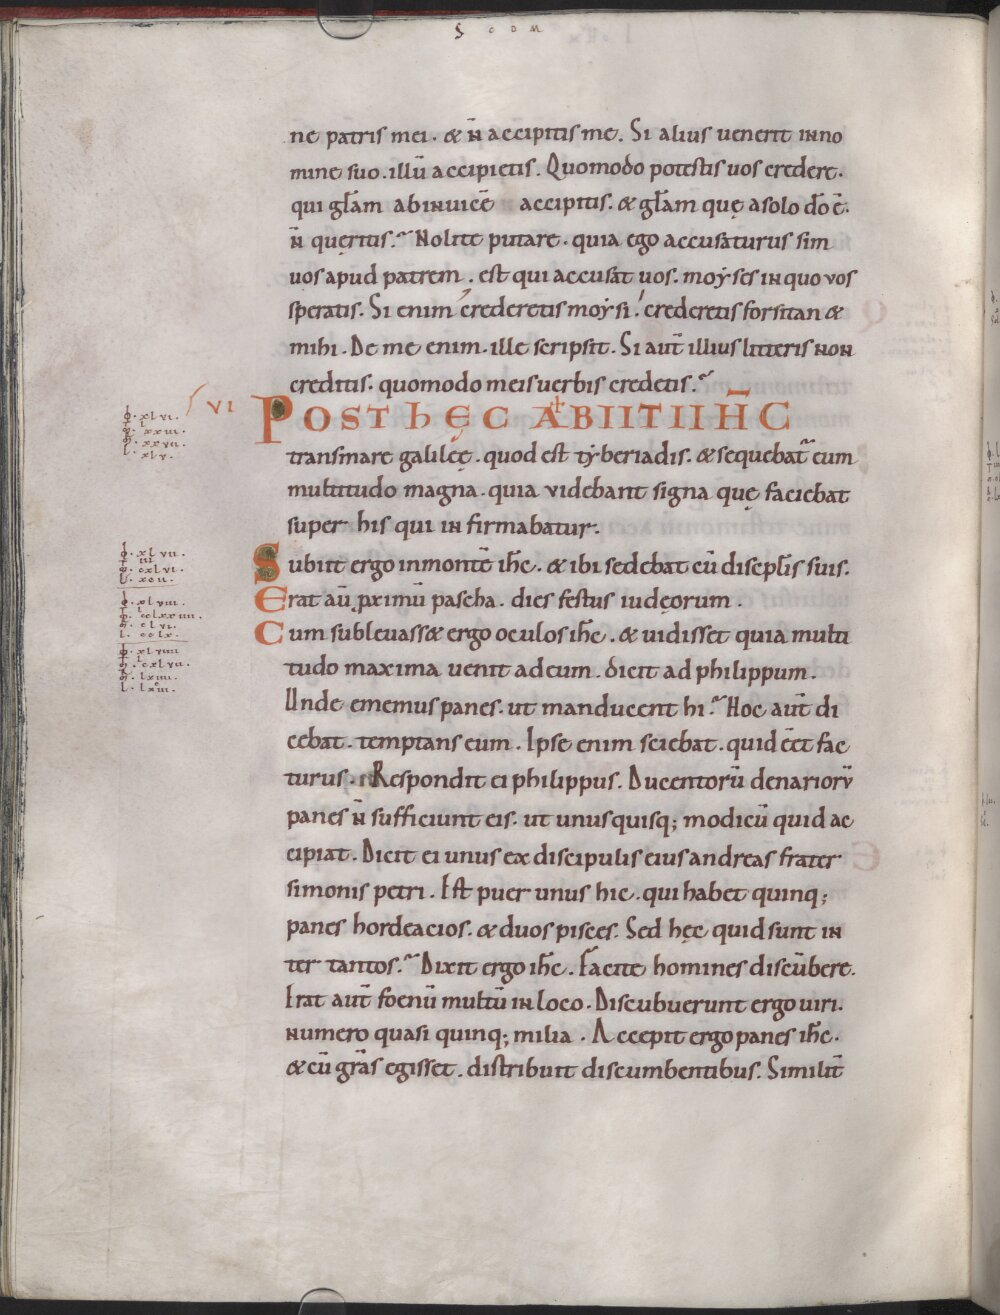 S CDM
ne patris mei. & n̄ accipitis me. Si alius uenerit inno
mine suo. illū accipietis. Quomodo potestis uos credere.
qui gl̄am abinuicē accipitis. & gl̄am quę asolo dō ē.
n̄ queritis. Nolite putare. quia ego accusaturus sim
uos apud patrem. est qui accusat uos. moẏses in quo vos
speratis. Si enim crederetis moẏsi. crederetis forsitan &
mihi. De me enim. ille scripsit. Si aut̄ illius litteris non
creditis. quomodo meis uerbis credetis.
VI POST hĘC ABIIT IH̄C
transmare galileę. quod est tẏberiadis. & sequebat̄ eum
multitudo magna. quia videbant signa quę faciebat
super his qui in firmabatur.
Subiit ergo inmontē ih̄c. & ibi sedebat cū discipl̄is suis.
Erat aū proximū pascha. dies festus iudęorum.
Cum subleuass& ergo oculos ih̄c. & uidisset quia multi
tudo maxima uenit adeum. dicit ad philippum.
Unde ememus panes. ut manducent hi. Hoc aut̄ di
cebat. temptans eum. Ipse enim sciebat. quid eēt fac
turus. Respondit ei philippus. Ducentorū denariorū
panes n̄ sufficiunt eis. ut unusquisq; modicū quid ac
cipiat. Dicit ei unus ex discipulis eius andreas frater
simonis petri. Est puer unus hic. qui habet quinq;
panes hordeacios. & duos pisces. Sed hęc quid sunt in
ter tantos. Dixit ergo ih̄c. Facite homines discūbere.
Erat aut̄ foenū multū in loco. Discubuerunt ergo uiri.
numero quasi quinq; milia. Accepit ergo panes ih̄c.
& cū gr̄as egisset. distribuit discumbentibus. Similit̄